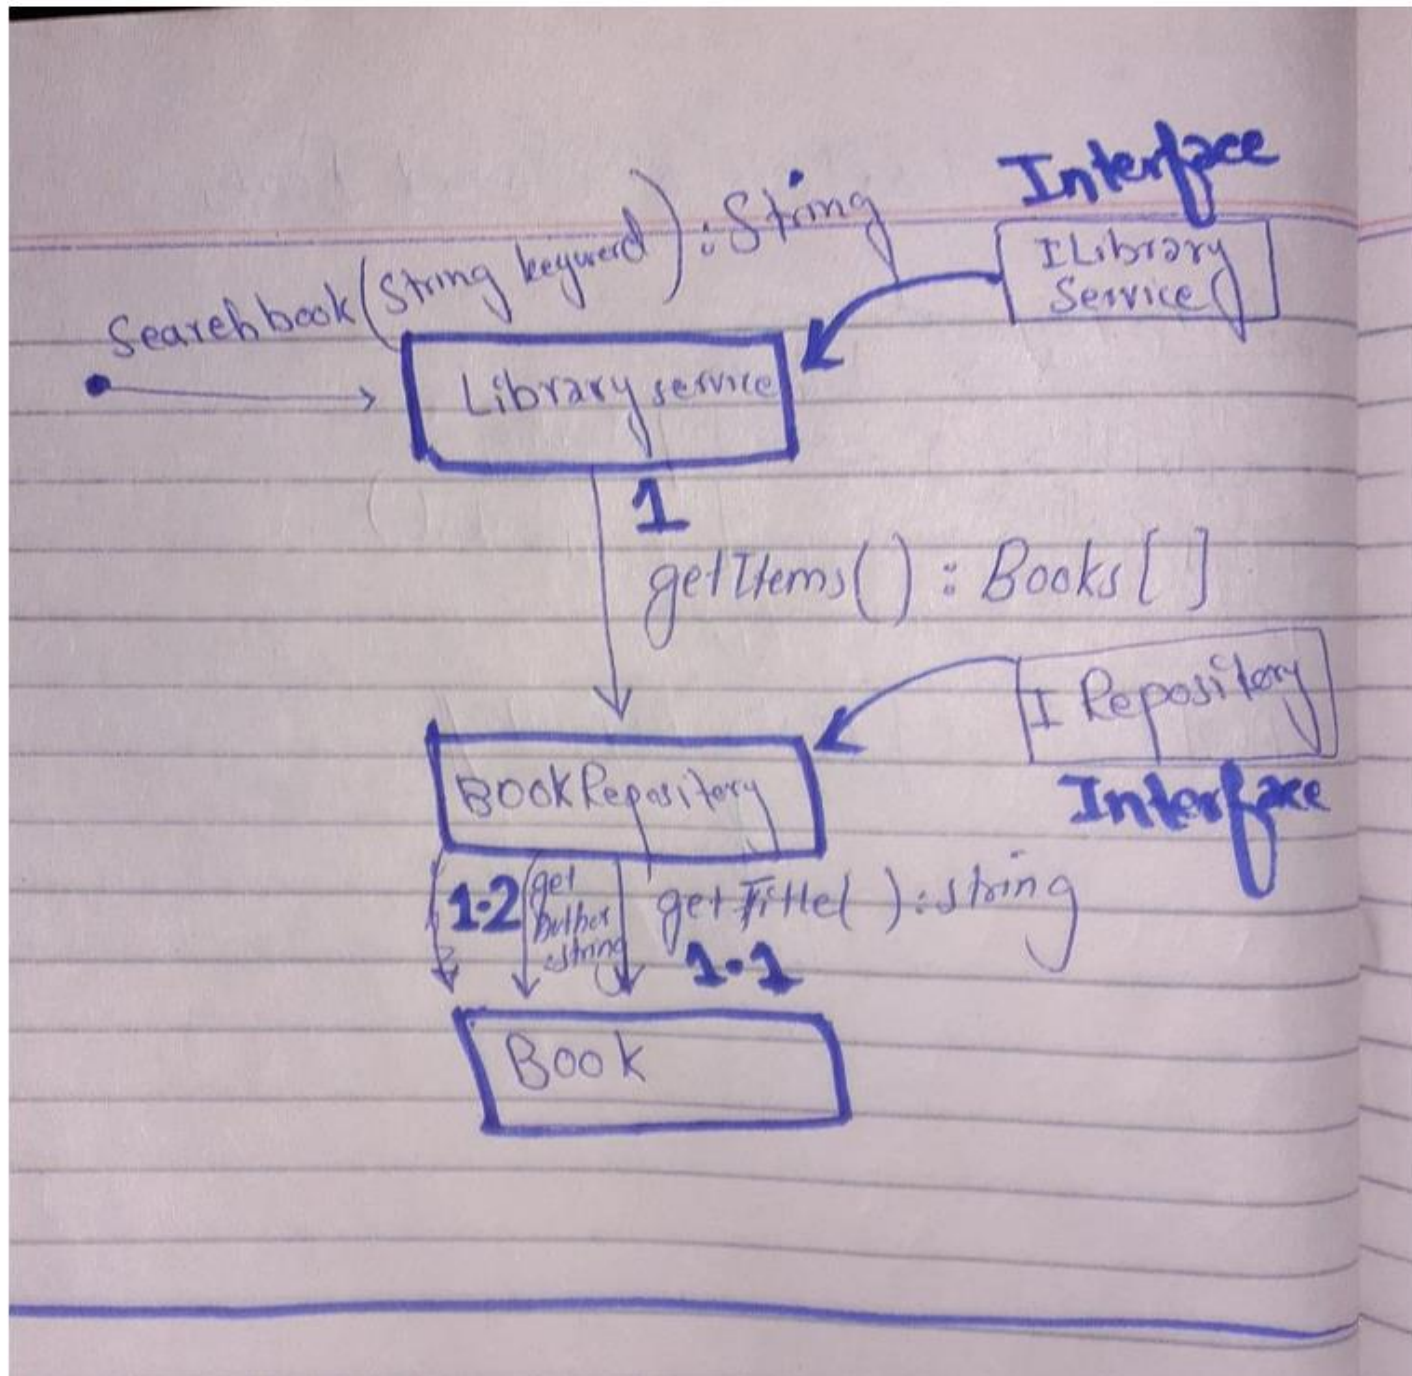 Interface
Searchbook(String keyword) : String
ILibrary
Service
Library service
1
getItems() : Books[ ]
I Repository
Interface
BookRepository
1.2
get
:string
getTitle( ):string
1.1
Book